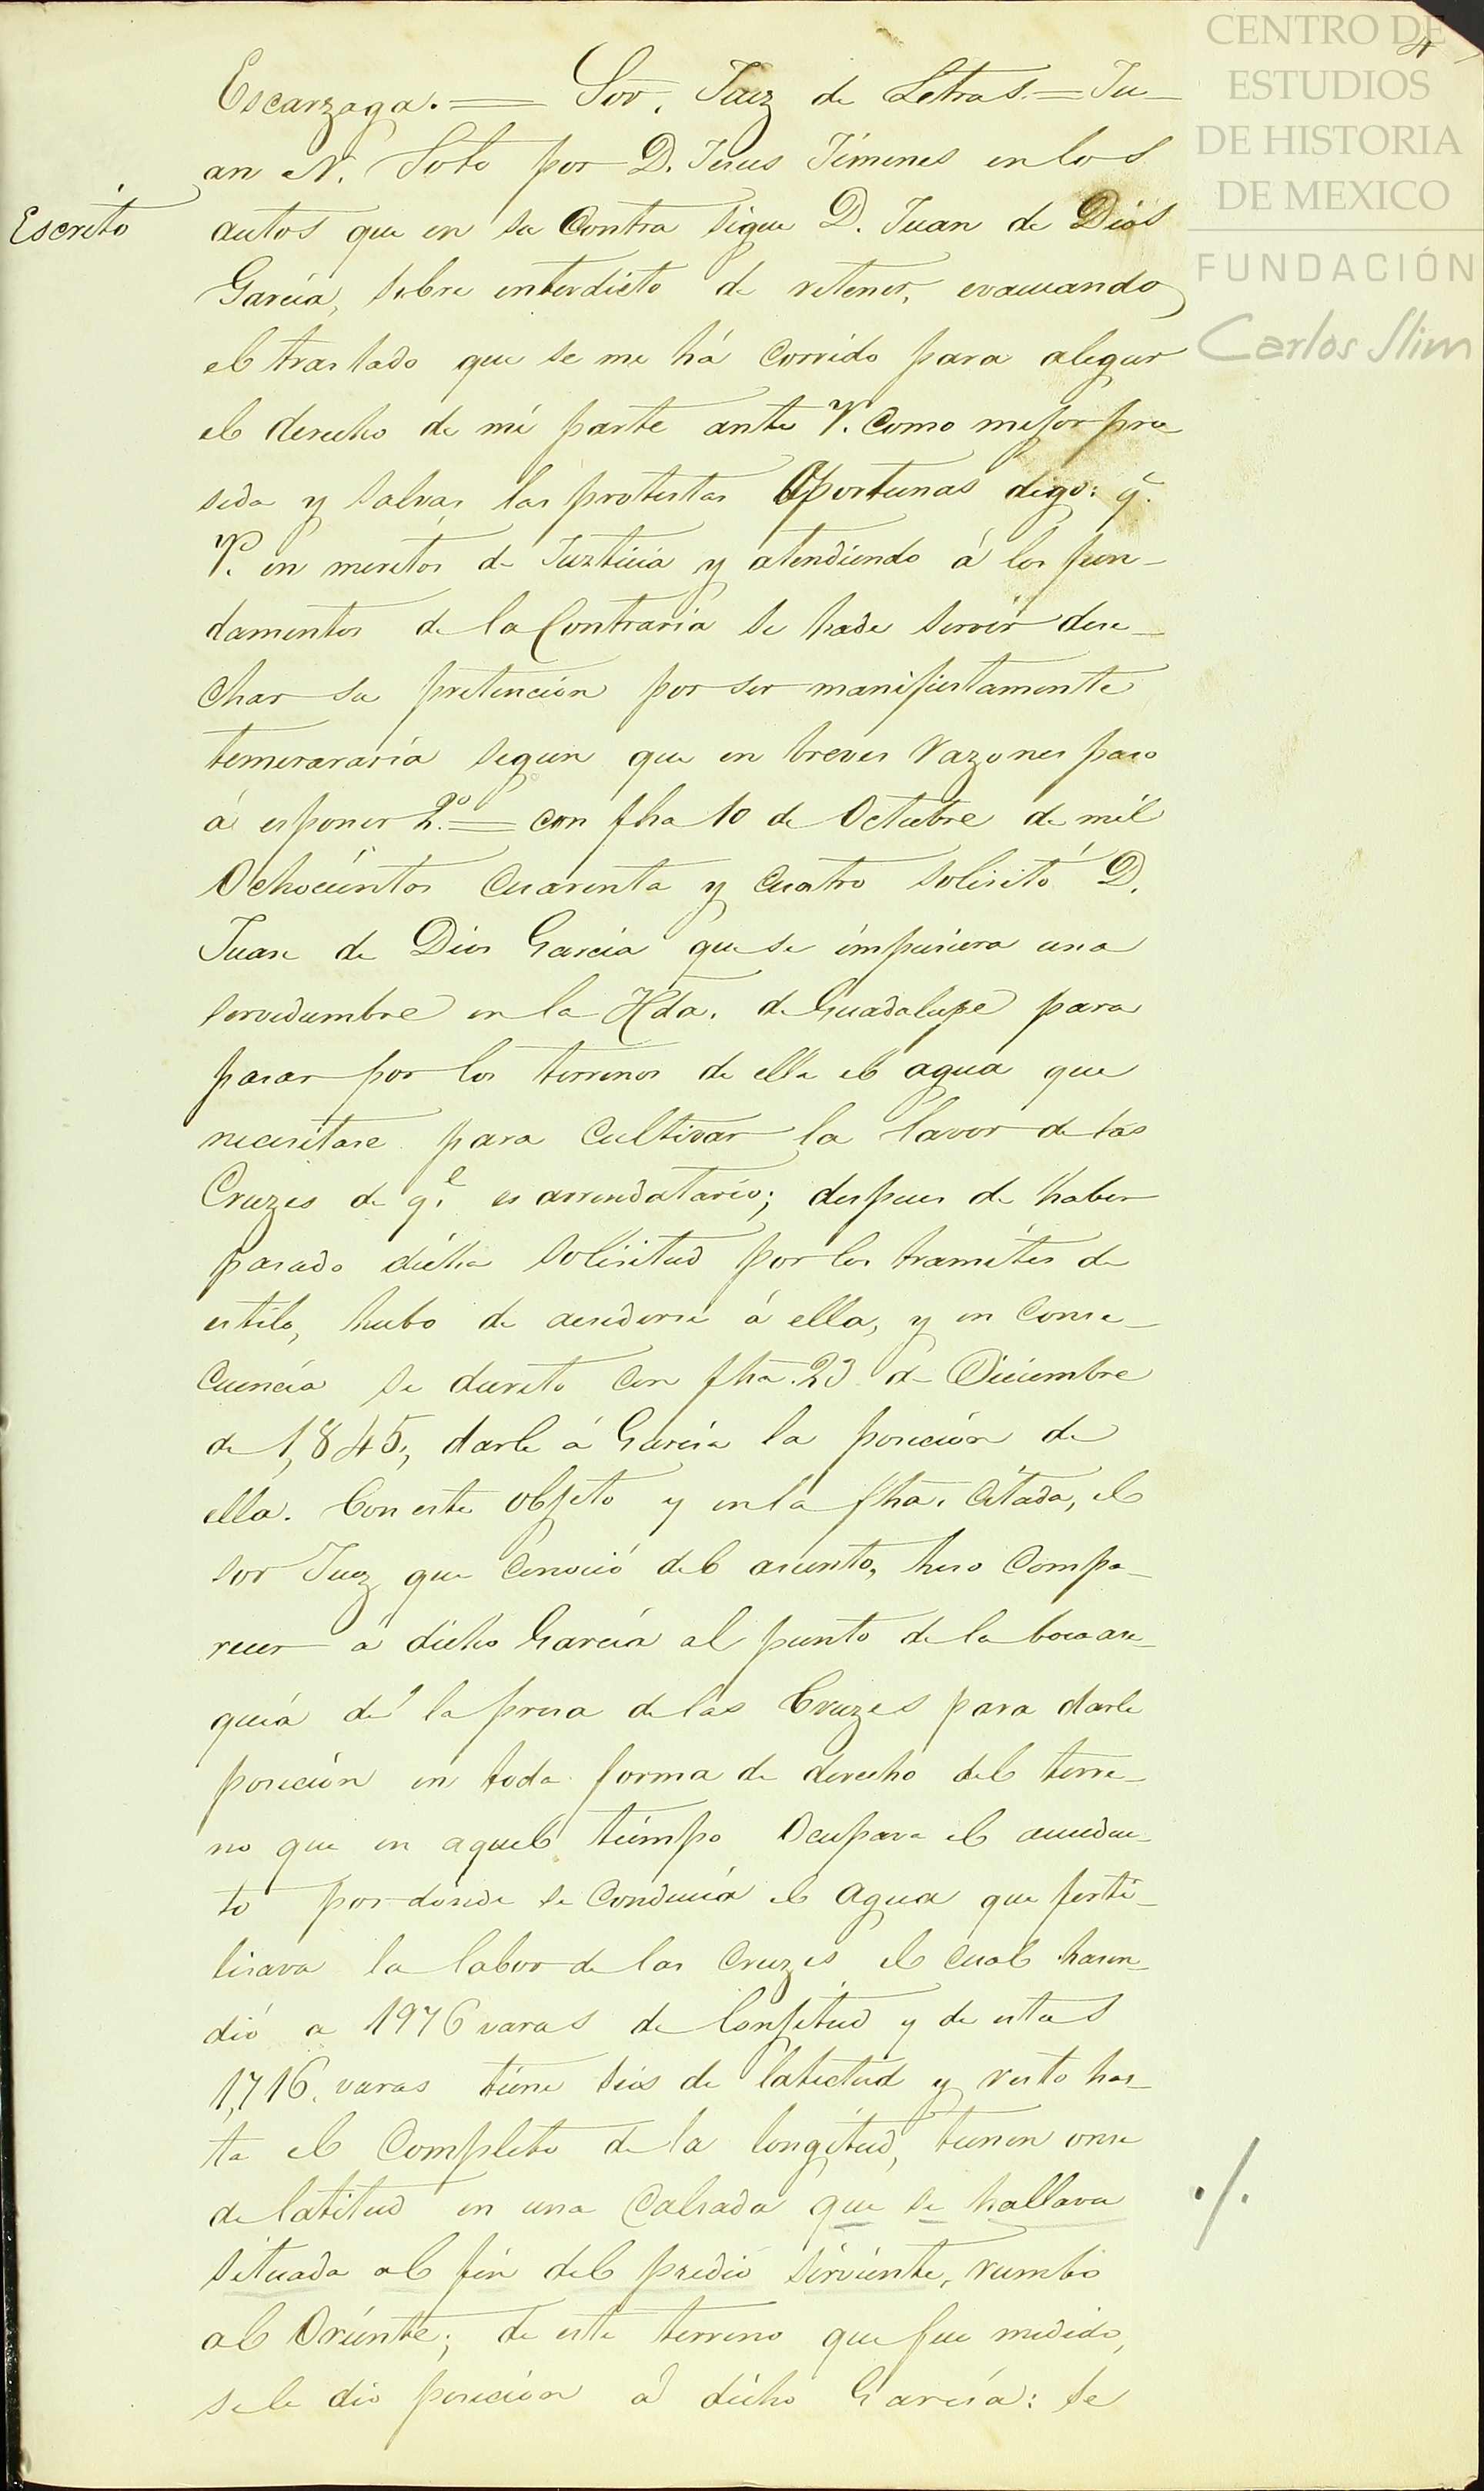 CENTRO DE
ESTUDIOS
DE HISTORIA
DE MEXICO
FUNDACIÓN
Carlos Slim
4
Escarzaga.= Sor. Juez de Letras.= Ju-
an N. Soto por D. Jesus Jimenes en los
Escrito
autos que en su Contra sigue D. Juan de Dios
García, sobre interdicto de retener, evacuando
el traslado que se me há corrido para alegar
el derecho de mi parte ante V. Como mejor pro
seda y salvas las protestas Oportunas digo: q.
V. en meritos de Justicia y atendiendo á los fun-
damentos de la Contraria se hade servir dese-
char su pretencion por ser manifiestamente
temeraria segun que en breves razones paso
á esponer 2.º= con fha 10 de Octubre de mil
Ochocientos Cuarenta y Cuatro solisitó D.
Juan de Dios Garcia que se impusiera una
servidumbre en la Hda. de Guadalupe para
pasar por los terrenos de ella el agua que
necesitase para Cultivar la lavor de las
Cruzes de q.e es arrendatario; despues de haber
pasado dicha solisitud por los tramites de
estilo, hubo de acsederse á ella, y en Conse-
cuencia se decreto con fha. 23 de Diciembre
de 1,845, darle á Garcia la posecion de
ella. Con este objeto y en la fha. Citada, el
sor Juez que Conoció del asunto, hiso Compa-
recer á dicho Garcia al punto de la bocaase-
quia de la presa de las Cruzes para darle
posecion en toda forma de derecho del terre-
no que en aquel tiempo Ocupava el acuedu-
to por donde se Conducia el agua que ferti-
lisava la labor de las Cruzes el cual hasen-
dió a 1976 varas de lonjitud y de estas
1,716. varas tiene seis de latictud y resto has-
ta el Completo de la longitud, tienen onse
de latitud en una Calsada que se hallava
./.
situada al fin del predio sirviente, rumbo
al Oriente; de este terreno que fue medido,
se le dio posecion á dicho Garcia: se